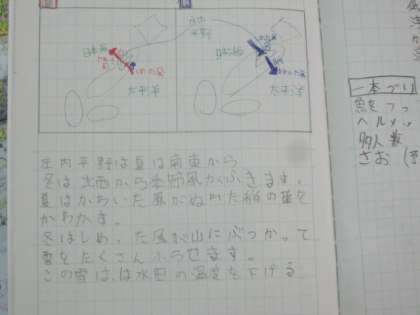 日本海
太平洋
庄内
平野
日本海
しめった風
太平洋
庄内平野は夏は南東から
冬は北西から季節風がふきます。
夏はかわいた風がぬれた稲の葉を
かわかす。
冬はしめった風が山にぶつかって
雪をたくさんふらせます。
この雪は、は水田の温度を下げる
一本づり
魚をつっ
ヘルメッ
多人数
さお